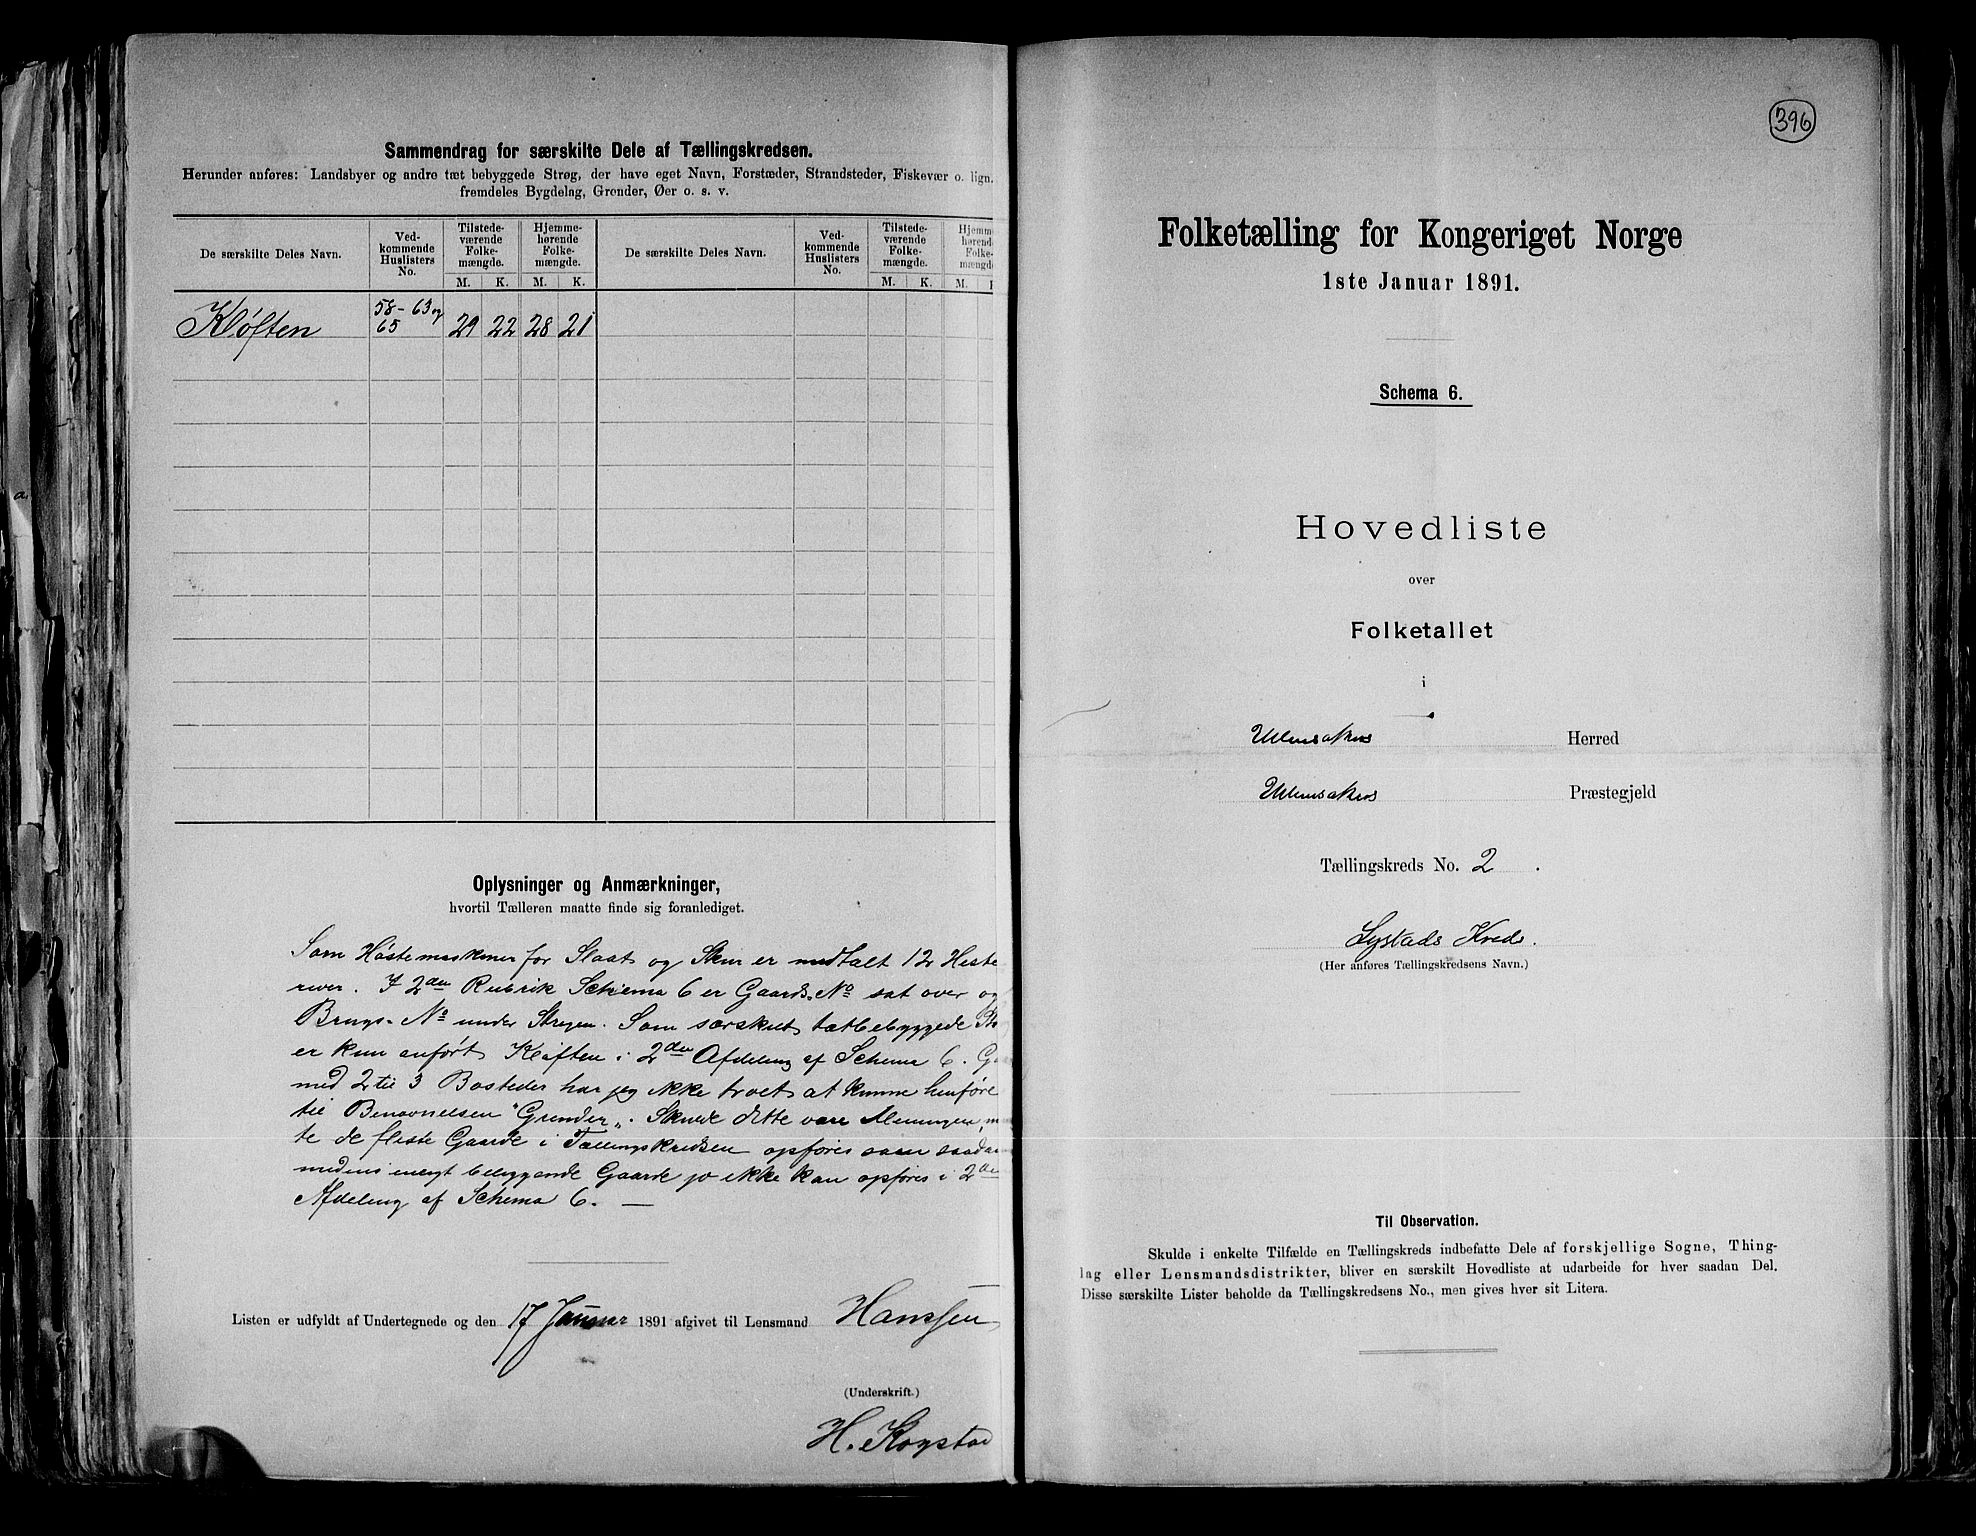 Sammendrag for særskilte Dele af Tællingskredsen.
Herunder anføres: Landsbyer og andre tæt bebyggede Strøg, der have eget Navn, Forstæder, Strandsteder, Fiskevær o. lign.
fremdeles Bygdelag, Grender, Øer o. s. v.
De særskilte Deles Navn.
Ved-
kommende
Huslisters
No.
Tilstede-
værende
Folke-
mængde.
Hjemme-
hørende
Folke-
mængde.
M. K. M. K.
De særskilte Deles Navn.
Ved-
kommende
Huslisters
No.
Tilstede-
værende
Folke-
mængde.
Hjemm
hørend
Folke-
mængd
M. K. M.
Kløften 58-63 og 65 29 22 28 21
Oplysninger og Anmærkninger,
hvortil Tælleren maatte finde sig foranlediget.
Som Høstemaskiner for Slaat og Skur er medtalt 12 Heste
river. I 2den Rubrik Schema 6 er Gaards-No sat over og
Brugs-No under Stregen. Som særskilt tætbebyggede
er kun anført Kløften i 2den Afdeling af Schema 6.
med 2 til 3 Bosteder har jeg ikke troet at kunne henføre
til Benævnelsen "Grender". Skulde dette være Meningen,
te de fleste Gaarde i Tællingskredsen opføres som
medens enegt bebyggende Gaarde jo ikke kan opføres i 2den
Afdeling af Schema 6. —
Listen er udfyldt af Undertegnede og den 17 Januar 1891 afgivet til Lensmand Hanssen
(Underskrift.)
H. Kogstad
396
Folketælling for Kongeriget Norge
1ste Januar 1891.
Schema 6.
Hovedliste
over
Folketallet
i
Ullensakers Herred
Ullensakers Præstegjeld
Tællingskreds No. 2.
Lystads Kreds.
(Her anføres Tællingskredsens Navn.)
Til Observation.
Skulde i enkelte Tilfælde en Tællingskreds indbefatte Dele af forskjellige Sogne, Thing-
lag eller Lensmandsdistrikter, bliver en særskilt Hovedliste at udarbeide for hver saadan Del.
Disse særskilte Lister beholde da Tællingskredsens No., men gives hver sit Litera.